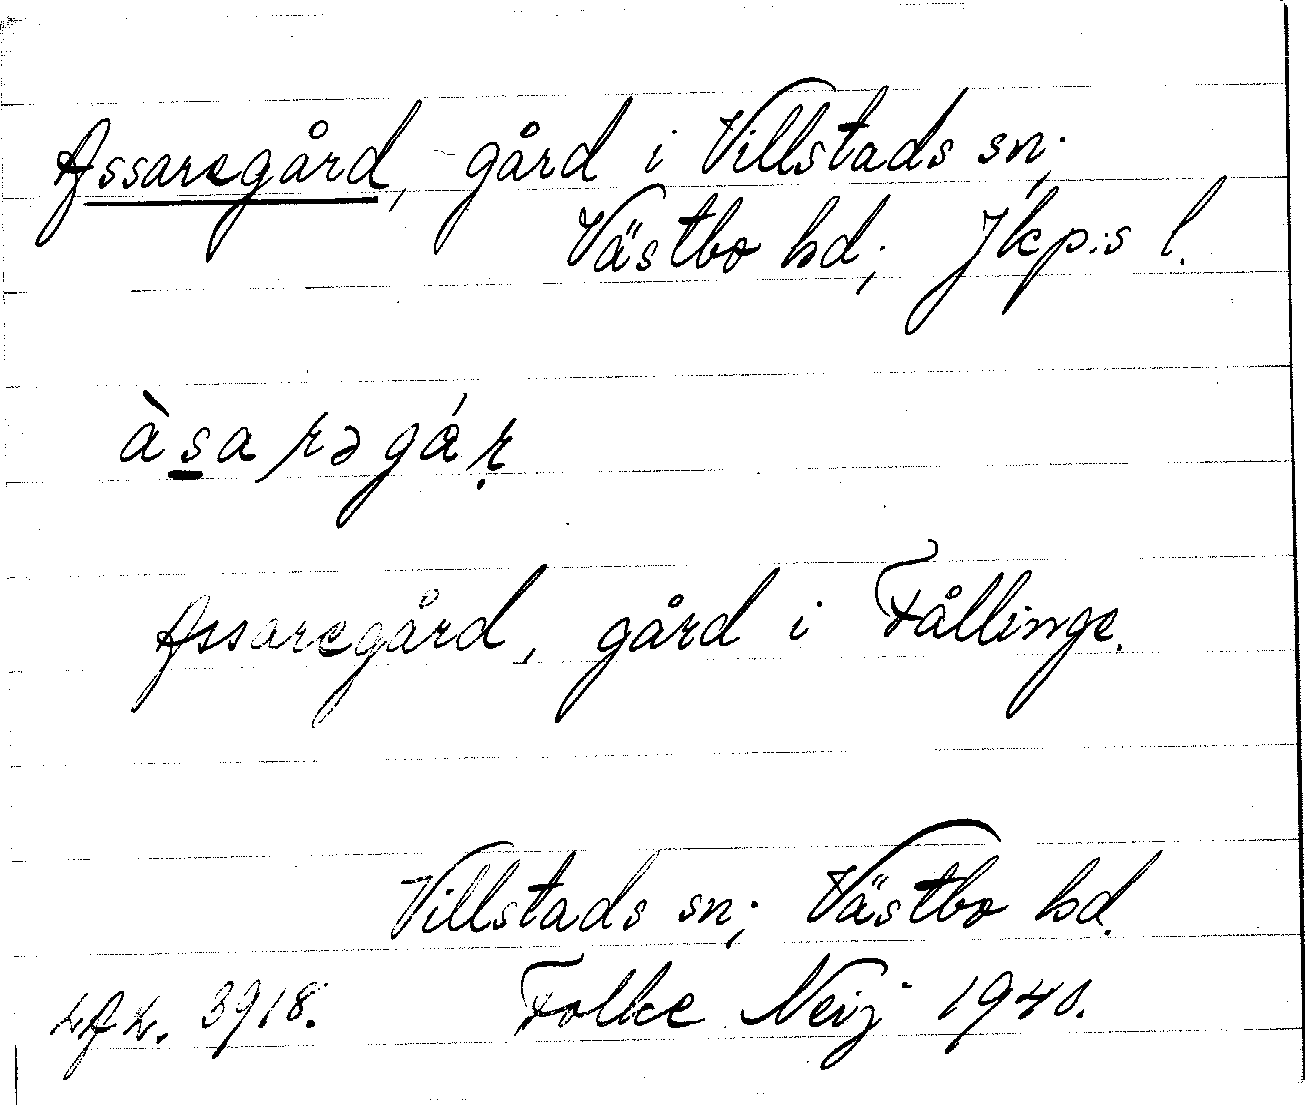 Assaregård, gård i Villstads sn;
Västbo hd; Jkp:s l.
àsarəgár̤
Assaregård, gård i Fållinge.
Villstads sn; Västbo hd.
LAL. 3918. Folke Neij 1940.